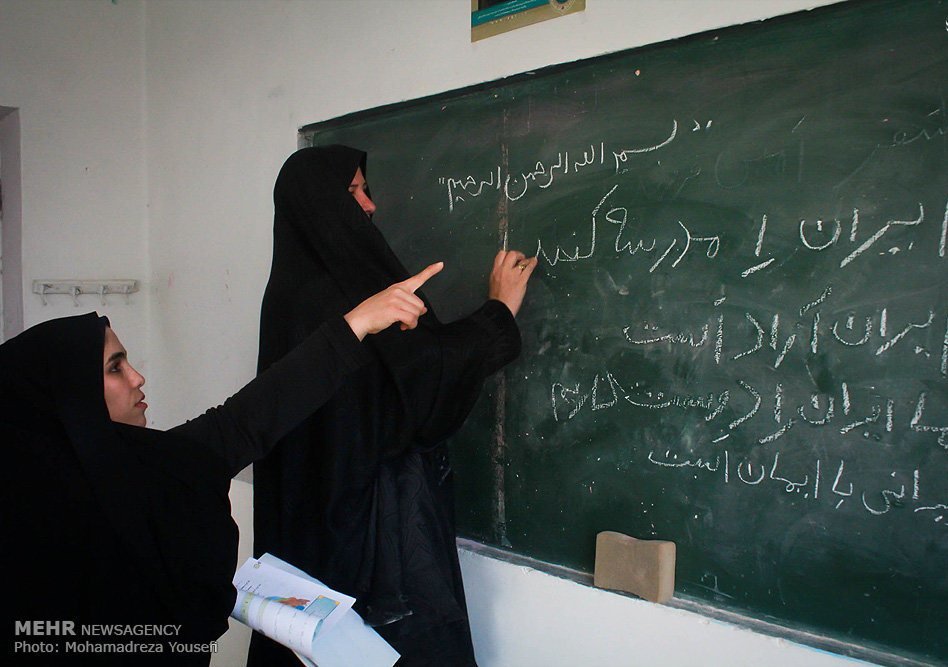 "بسم الله الرحمن الرحیم"
ایران را مدرسه کنید
ایران آزاد است
ما ایران را دوست داریم
ایرانی با ایمان است
MEHR NEWSAGENCY
Photo: Mohamadreza Yousefi